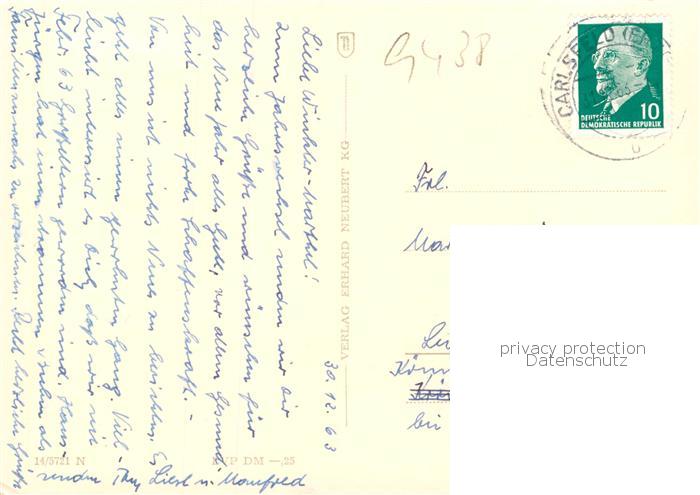 30.12.63
Liebe Winkler-Marthel!
Zum Jahreswechsel senden wir Dir
herzliche Grüße und wünschen für
das Neue Jahr alles Gute, vor allem Gesund-
heit und frohe Schaffenskraft. -
Von uns ist nichts Neues zu berichten. Es
geht alles seinen gewohnten Gang. Viel-
leicht interessiert es Dich, daß wir seit
Febr. 63 Großeltern geworden sind. Hans-
Jürgen hat einen strammen als
Familienzuwachs zu verzeichnen. Recht herzliche Grüße
senden Liesl u. Manfred
14/5721 N
EVP DM -,25
VERLAG ERHARD NEUBERT KG
G 438
CARLSFELD
DEUTSCHE
DEMOKRATISCHE REPUBLIK
10
Frl.
Mar
bei
privacy protection
Datenschutz